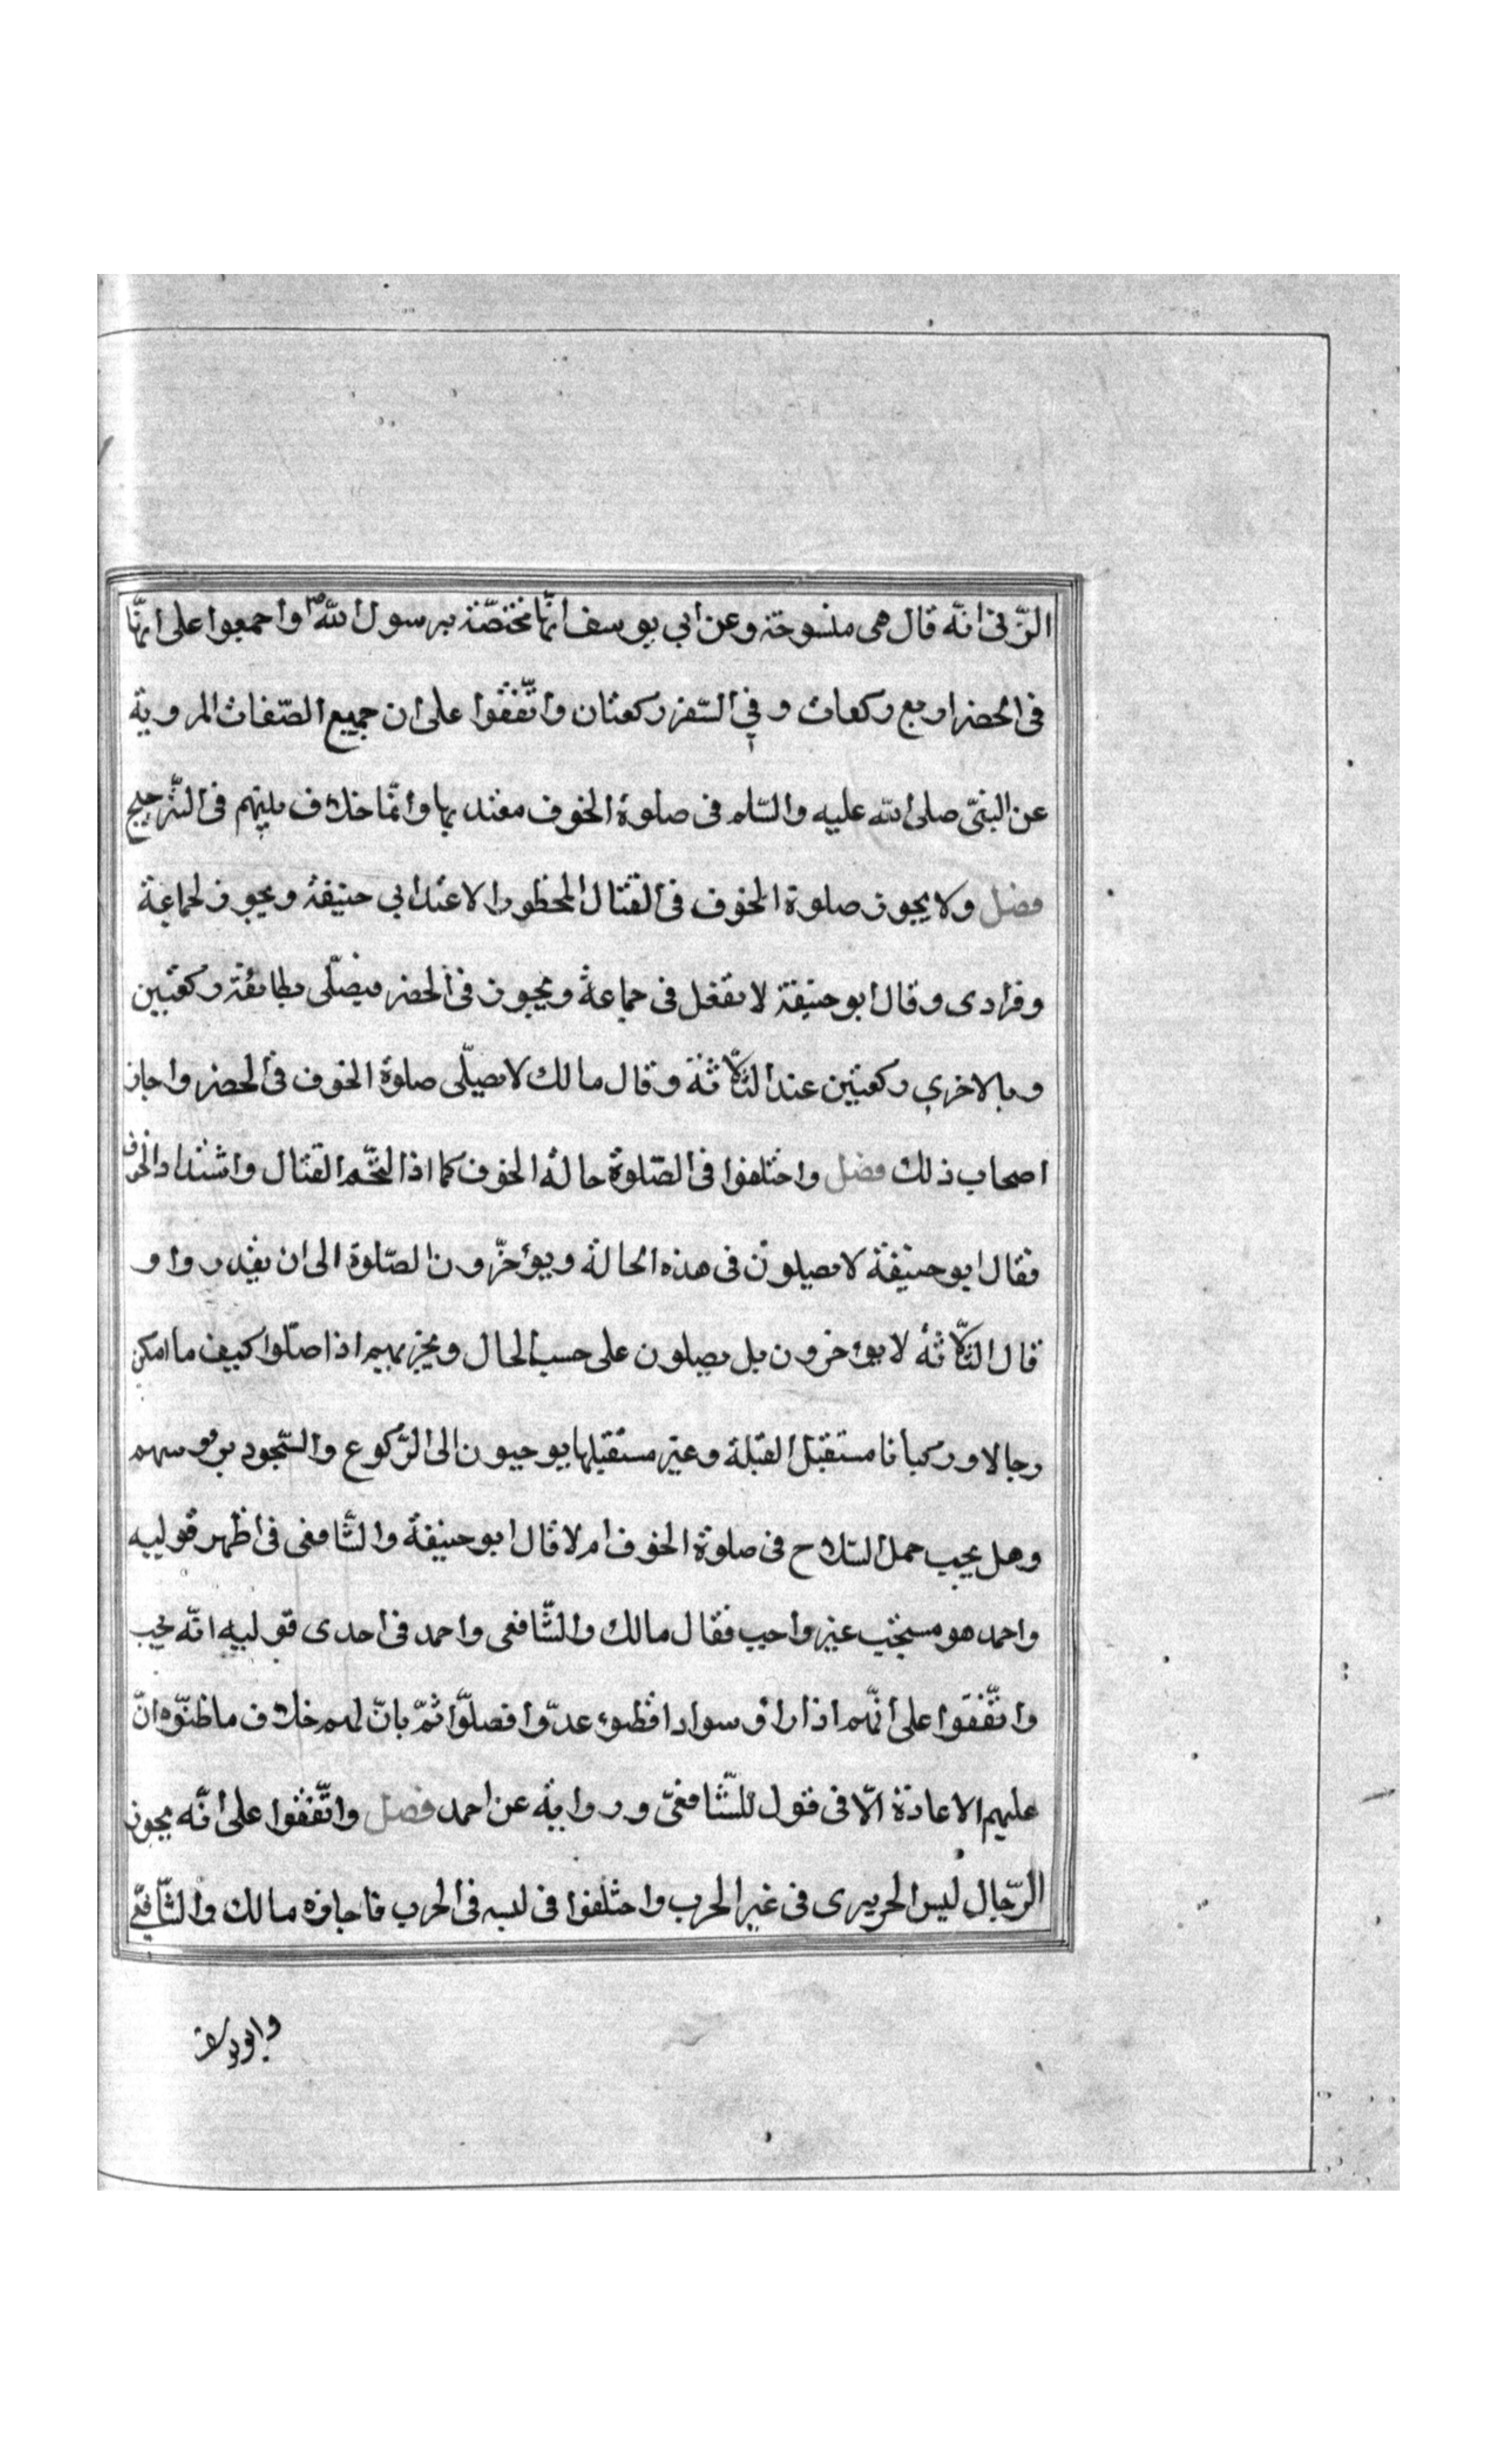 الزّنى انّه قال هى منسوخة وعن ابي يوسف انّها مختصّة برسول اللهؐ واجمعوا على انّها
فى الحضر اربع ركعات وفي السّفر ركعتان واتّفقوا على ان جميع الصّفات المروية
عن النبىّ صلى الله عليه والسّلم فى صلوة الخوف معتد بها وانّما خلاف بينهم فى التّرجيح
فصل ولا يجوز صلوة الخوف فى القتال المحظور الا عند ابي حنيفة ويجوز لجماعة
وفرادى وقال ابو حنيفة لا تفعل فى جماعة ويجوز فى الحضر فيصلّى بطائفة ركعتين
وبالاخري ركعتين عند الثّلاثة وقال مالك لا يصلّى صلوة الخوف فى الحضر واجاز
اصحاب ذلك فصل واختلفوا فى الصّلوة حالة الخوف كما اذا التحّم القتال واشتداد الخوف
فقال ابو حنيفة لا يصلون فى هذه الحالة ويؤخّرون الصّلوة الى ان يقدروا و
قال الثّلاثة لا يؤخرون بل يصلون على حسب الحال ويجزيهم اذا صلّوا كيف ما امكن
رجالا وركبانا مستقبل القبلة وغير مستقبلها يوجبون الى الرّكوع والسّجود برءوسهم
وهل يجب حمل السّلاح فى صلوة الخوف ام لا قال ابو حنيفة والشّافعى فى اظهر قوليه
واحمد هو مستحبّ غير واجب فقال مالك والشّافعى واحمد فى احدى قوليه انّه يجب
واتّفقوا على انّهم اذا راؤ سوادا فظنوه عدّوا فصلّوا ثمّ بانّ لهم خلاف ما ظنّوه انّ
عليهم الاعادة الّا فى قول للشّافعىّ ورواية عن احمد فصل واتّفقوا على انّه يجوز
الرّجال لبس الحريرى فى غير الحرب واختلفوا فى لبسه فى الحرب فاجازه مالك والشّافعّى
وابو يوسف